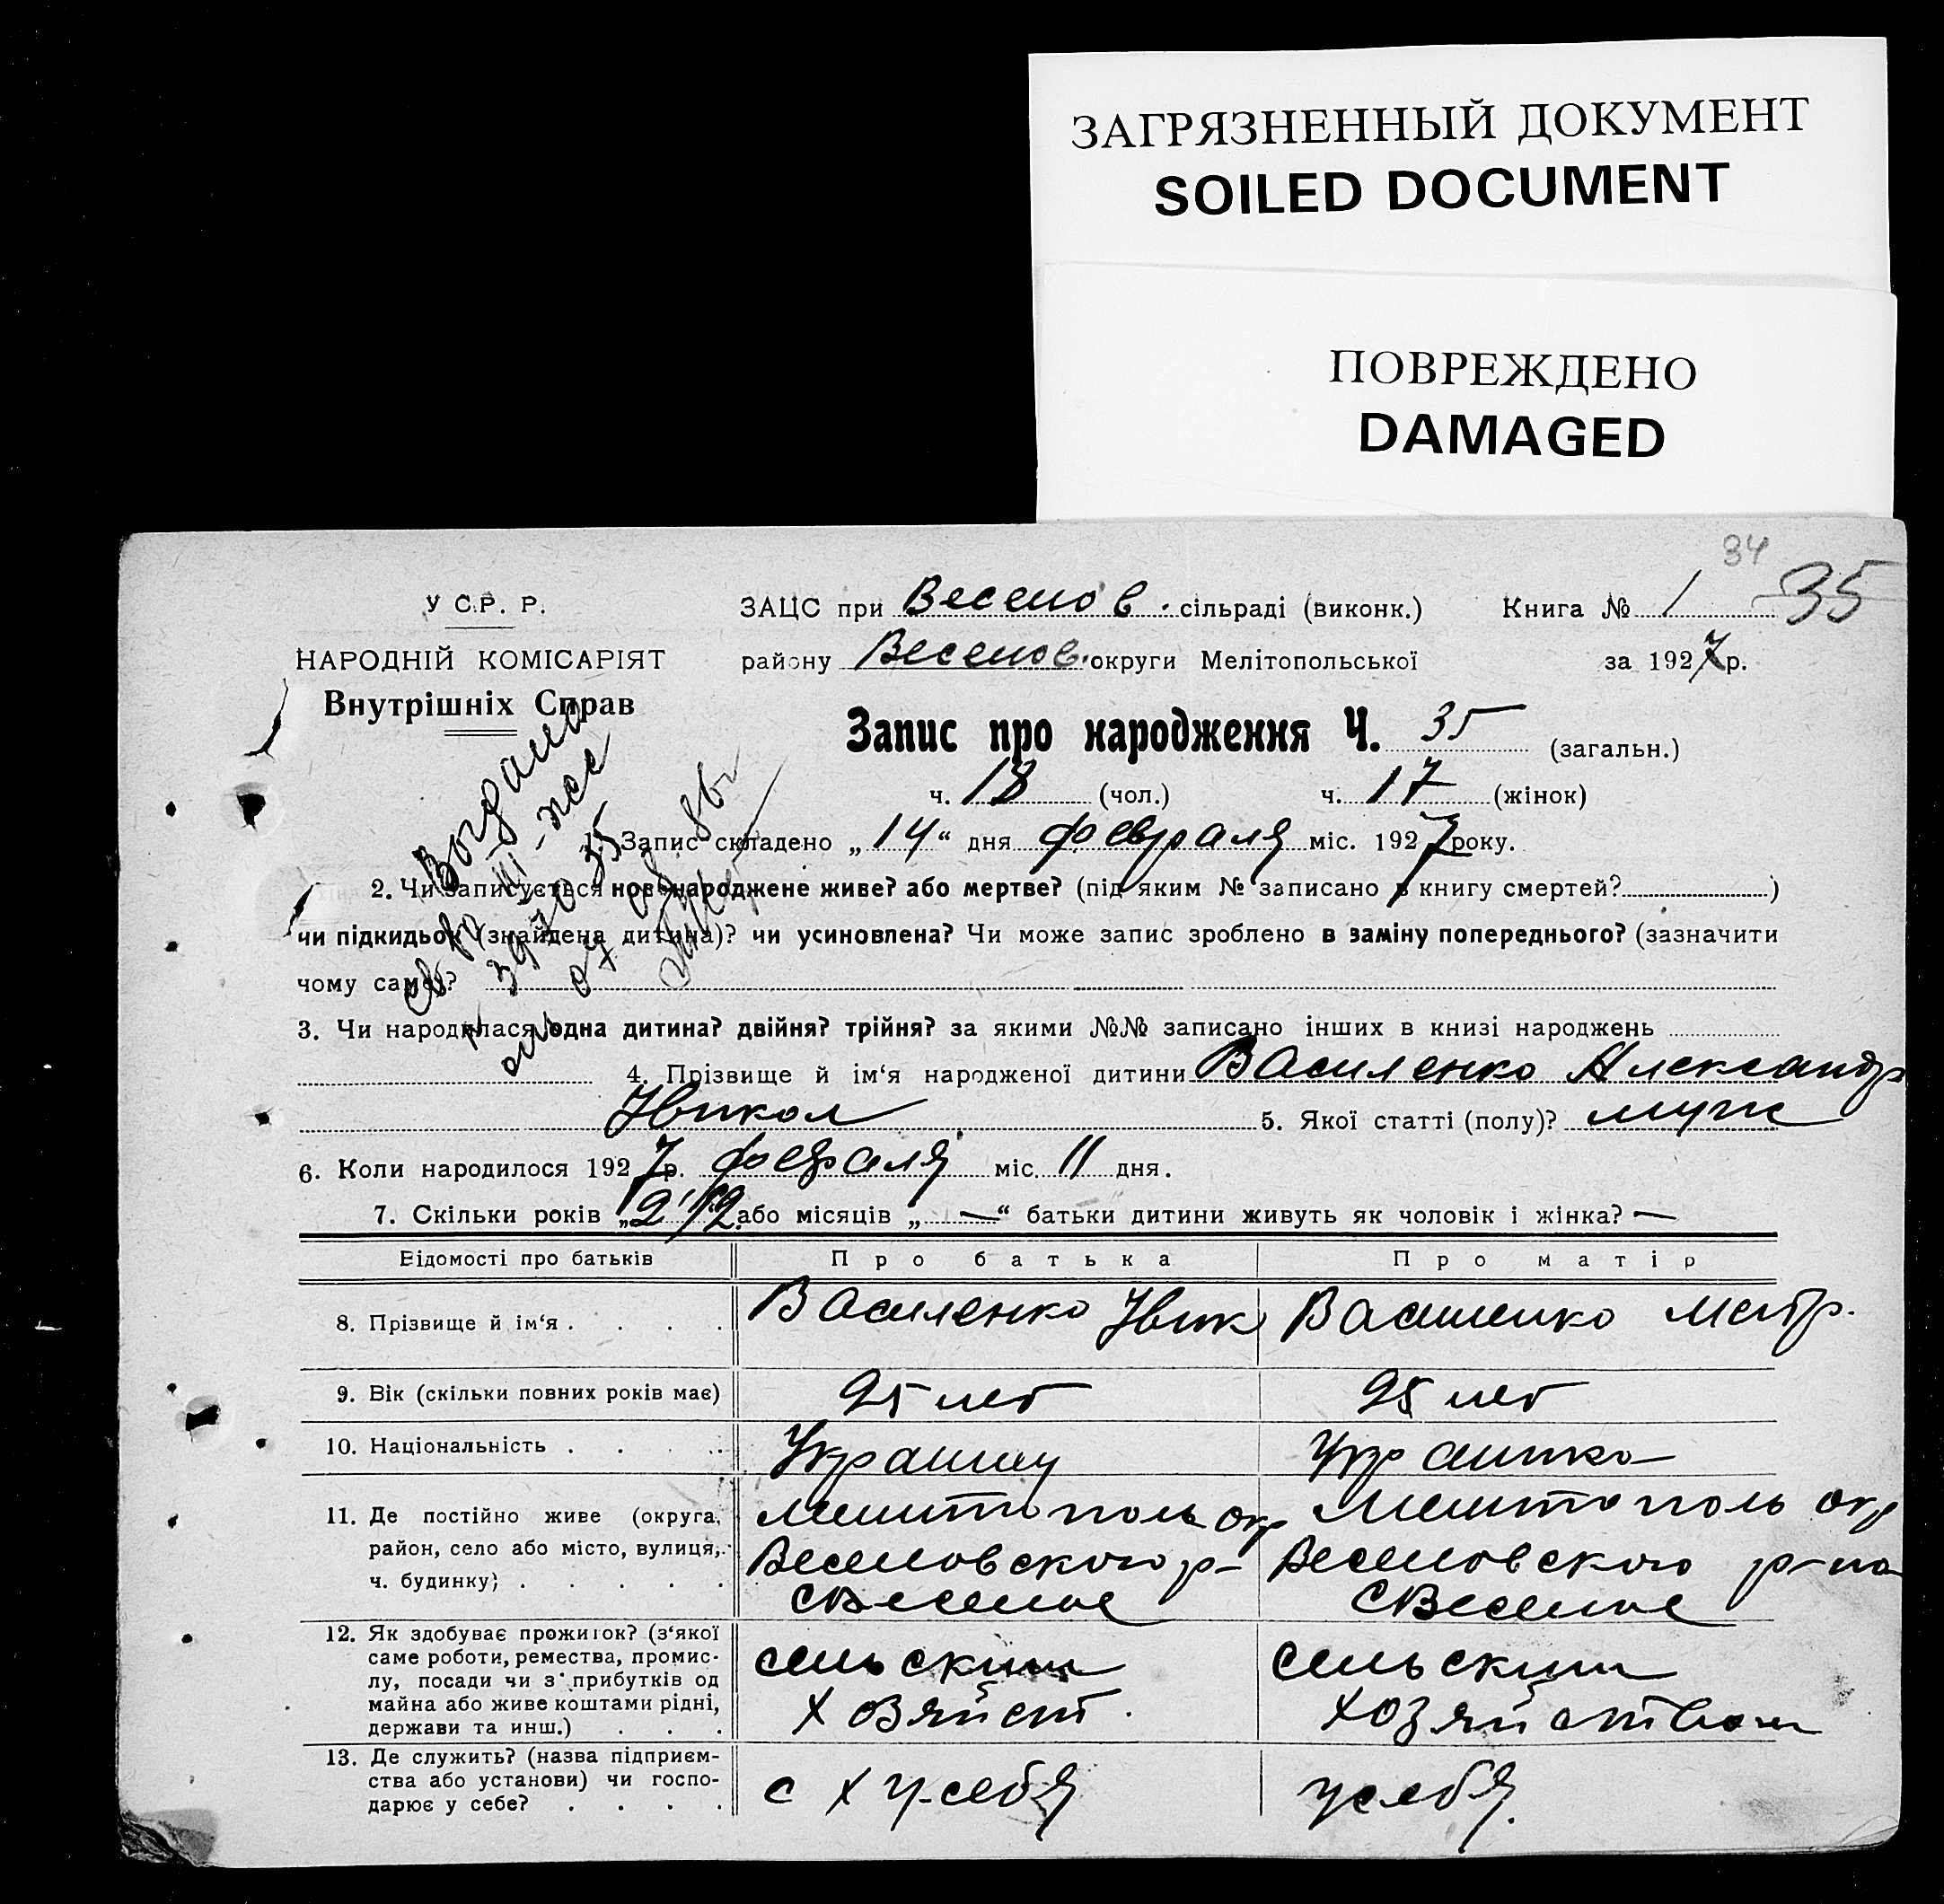 ЗАГРЯЗНЕННЫЙ ДОКУМЕНТ
SOILED DOCUMENT
ПОВРЕЖДЕНО
DAMAGED
34
У С.Р. Р.
НАРОДНІЙ КОМІСАРІЯТ
Внутрішніх Справ
ЗАЦС при Веселов. сільраді (виконк.) Книга № 1 35
району Веселов. округи Мелітопольської за 1927 р.
Запис про народження Ч. 35 (загальн.)
ч. 18 (чол.) ч. 17 (жінок)
Выдано
1. Запис складено „14“ дня февраля міс. 1927 року.
2. Чи записується новонароджене живе? або мертве? (під яким № записано в книгу смертей? )
чи підкидьок (знайдена дитина)? чи усиновлена? Чи може запис зроблено в заміну попереднього? (зазначити
чому саме)?
3. Чи народилася одна дитина? двійня? трійня? за якими №№ записано інших в книзі народжень
4. Прізвище й ім‘я народженої дитини Василенко Александр
Никол 5. Якої статті (полу)? муж
6. Коли народилося 1927 р. февраля міс. 11 дня.
7. Скільки років „2 1/2 або місяців „ — “ батьки дитини живуть як чоловік і жінка? —
Відомості про батьків Про батька Про матір
8. Прізвище й ім‘я . . . . Василенко Ник Василенко Матр.
9. Вік (скільки повних років має) 25 лет 25 лет
10. Національність . . . . Украинец Украинка
11. Де постійно живе (округа, Мелитополь окр Мелитополь окр
район, село або місто, вулиця, Веселовского р- Веселовского р-на
ч. будинку) . . . . . с Веселое с Веселое
12. Як здобуває прожиток? (з‘якої
саме роботи, ремества, промис- сельским сельским
лу, посади чи з прибутків од
майна або живе коштами рідні, хозяйст. хозяйством
держави та инш.) . . .
13. Де служить? (назва підприєм-
ства або установи) чи госпо- с х у себя у себя.
дарює у себе? . . . .